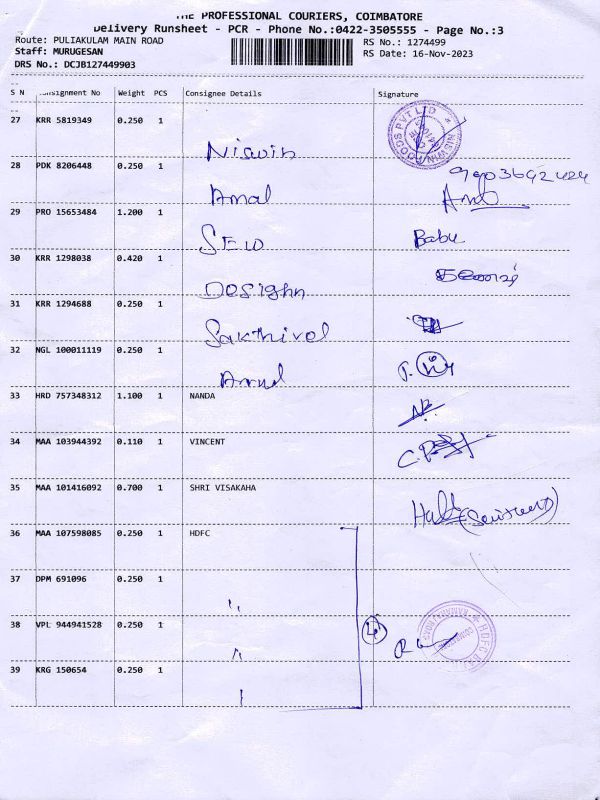 THE PROFESSIONAL COURIERS, COIMBATORE
Delivery Runsheet - PCR - Phone No.:0422-3505555 - Page No.:3
Route: PULIAKULAM MAIN ROAD
RS No.: 1274499
Staff: MURUGESAN
RS Date: 16-Nov-2023
DRS No.: DCJB127449903
S N Consignment No Weight PCS Consignee Details Signature
27 KRR 5819349 0.250 1 Niswin
28 PDK 8206448 0.250 1 Amal
29 PRO 15653484 1.200 1 SEW Babu
30 KRR 1298038 0.420 1 Desighn
31 KRR 1294688 0.250 1 Sakthivel
32 NGL 100011119 0.250 1
33 HRD 757348312 1.100 1 NANDA
34 MAA 103944392 0.110 1 VINCENT
35 MAA 101416092 0.700 1 SHRI VISAKAHA
36 MAA 107598085 0.250 1 HDFC
37 DPM 691096 0.250 1 "
38 VPL 944941528 0.250 1 " 4
39 KRG 150654 0.250 1